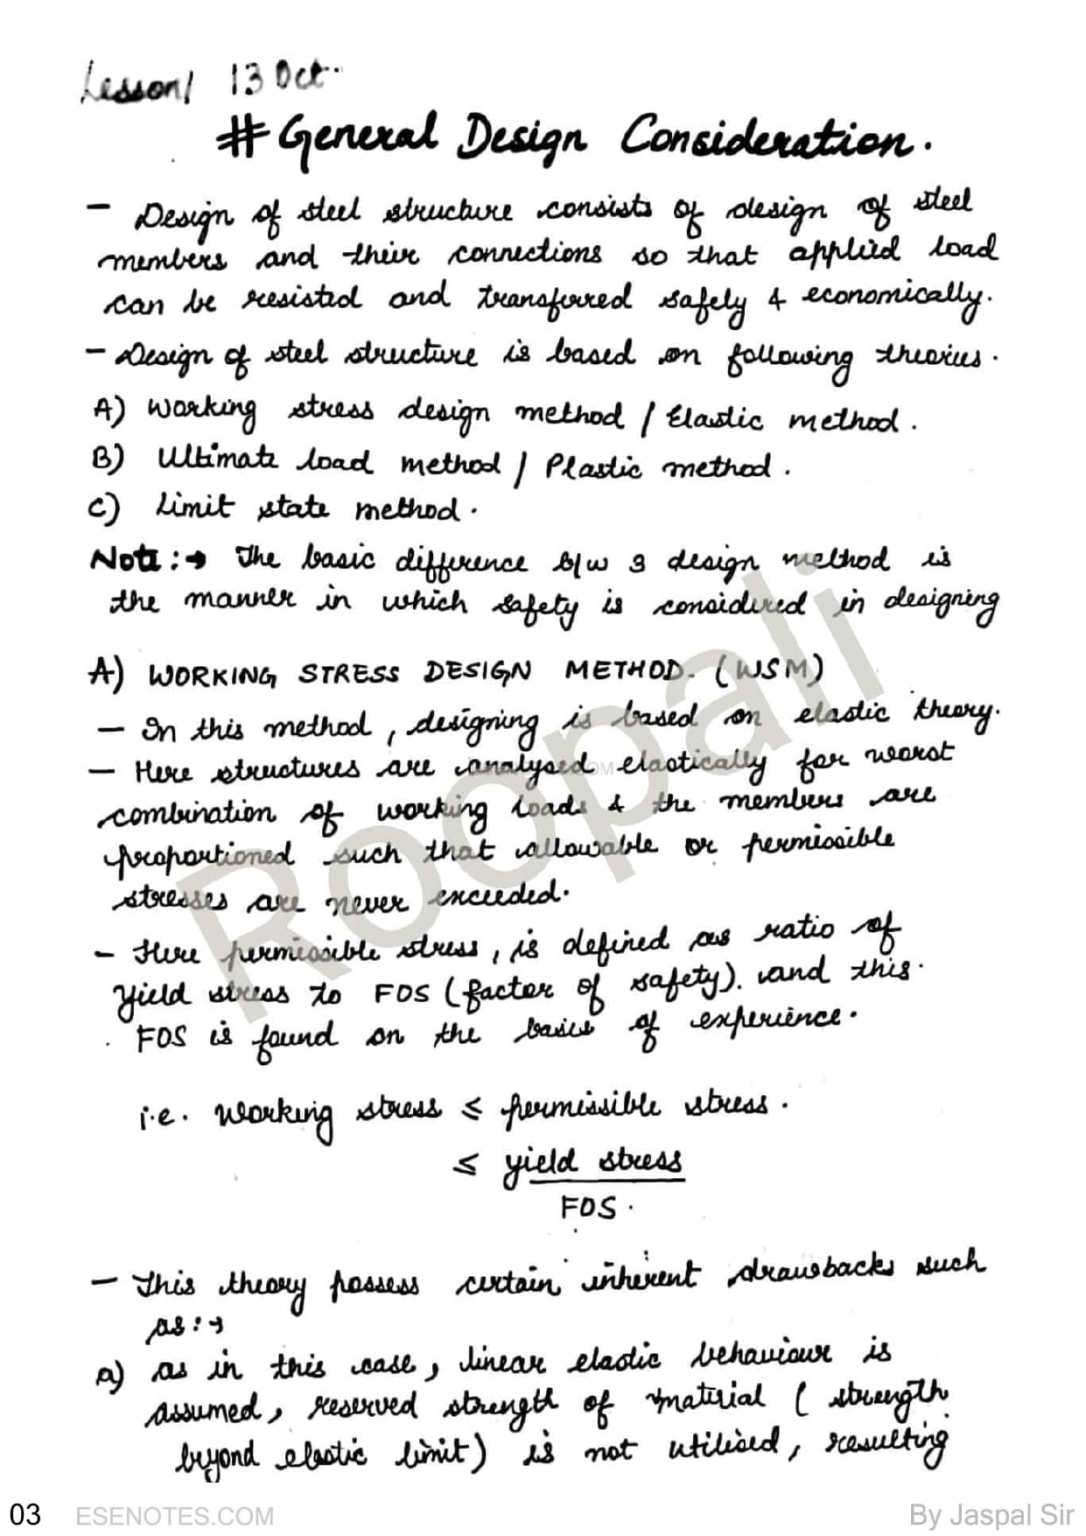 Lesson1 13 Oct.
# General Design Consideration.
- Design of steel structure consists of design of steel
members and their connections so that applied load
can be resisted and transferred safely & economically.
- Design of steel structure is based on following theories.
A) Working stress design method / Elastic method.
B) Ultimate load method / Plastic method.
C) Limit state method.
Note :→ The basic difference b/w 3 design method is
the manner in which safety is considered in designing
A) WORKING STRESS DESIGN METHOD. (WSM)
- In this method, designing is based on elastic theory.
- Here structures are analysed elastically for worst
combination of working loads & the members are
proportioned such that allowable or permissible
stresses are never exceeded.
- Here permissible stress, is defined as ratio of
yield stress to FOS (factor of safety). and this
FOS is found on the basis of experience.
i.e. working stress ≤ permissible stress.
≤ yield stress
FOS.
- This theory possess certain inherent drawbacks such
as :→
a) as in this case, linear elastic behaviour is
assumed, reserved strength of material ( strength
beyond elastic limit) is not utilised, resulting
Roopali
03 ESENOTES.COM By Jaspal Sir